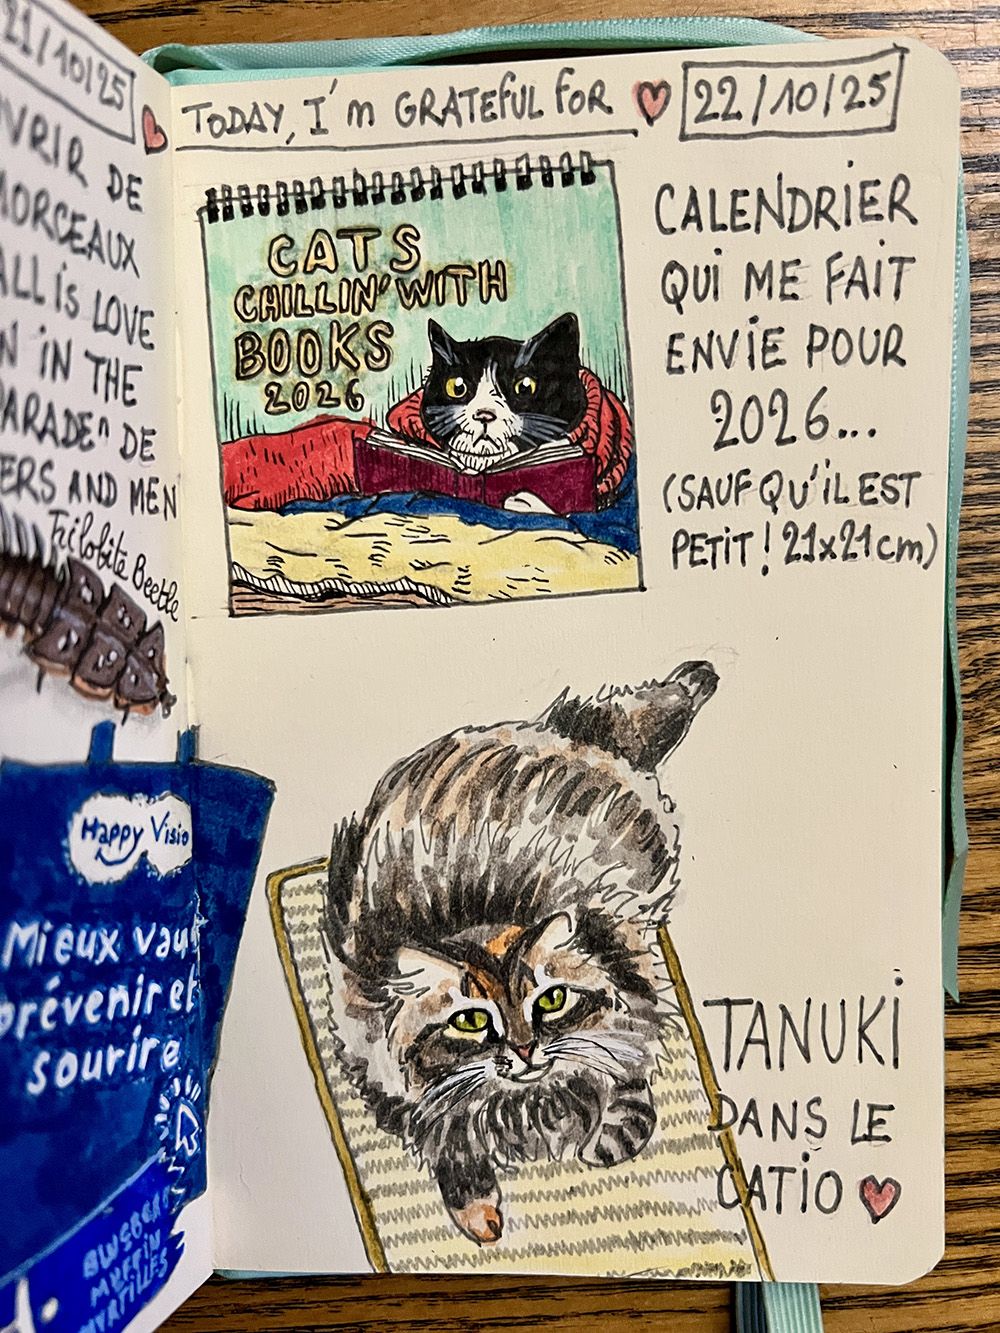 21/10/25
OUVRIR DE
MORCEAUX
ALL iS LOVE
IN THE
PARADE" DE
AND MEN
Trilobite Beetle
Happy Visio
Mieux vaut
prévenir et
sourire
MUFFIN
MYRTILLES
TODAY, I'm GRATEFUL FOR
22/10/25
CATS
CHILLIN' WITH
BOOKS
2026
CALENDRiER
QUi ME FAIT
ENViE POUR
2026...
(SAUF QU'iL EST
PETiT ! 21x21cm)
TANUKi
DANS LE
CATiO